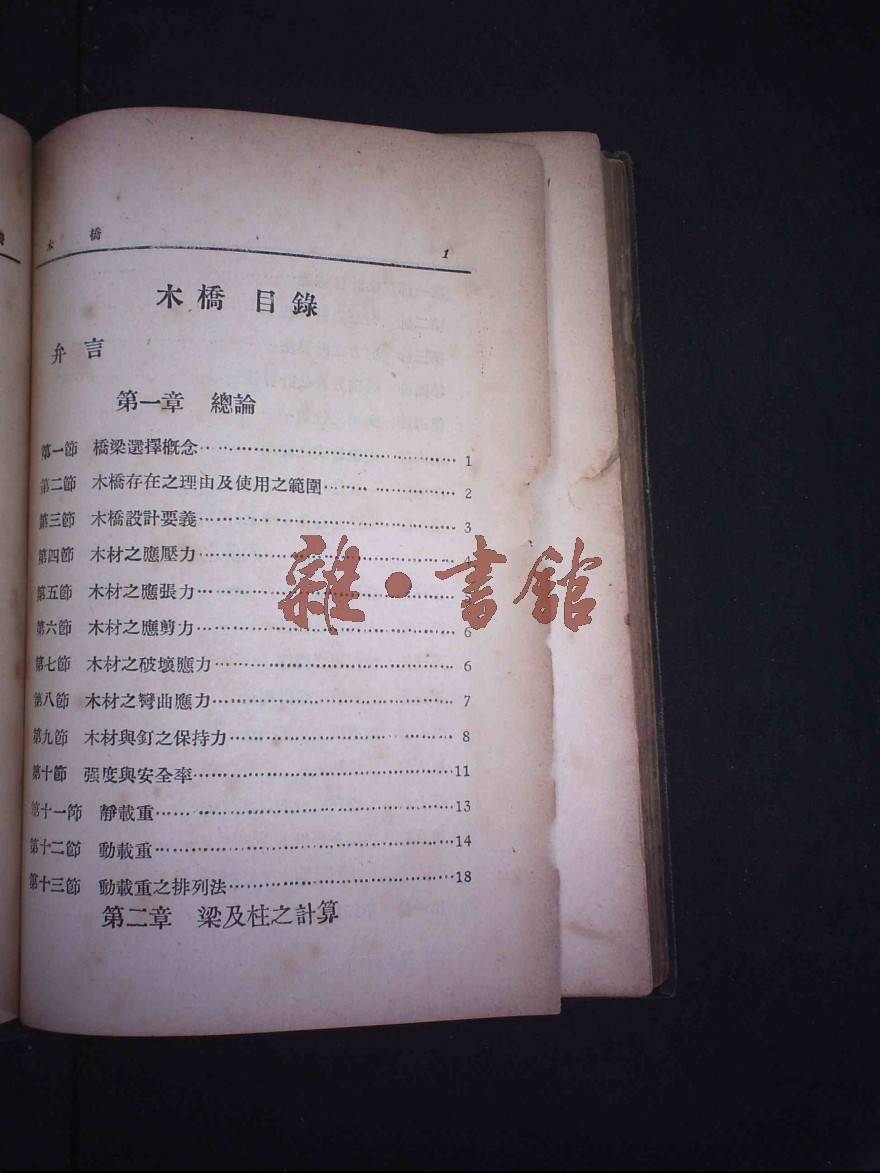 木橋 1
木橋 目錄
弁言
第一章 總論
第一節 橋梁選擇概念 1
第二節 木橋存在之理由及使用之範圍 2
第三節 木橋設計要義 3
第四節 木材之應壓力 4
第五節 木材之應張力
第六節 木材之應剪力 6
第七節 木材之破壞應力 6
第八節 木材之彎曲應力 7
第九節 木材與釘之保持力 8
第十節 强度與安全率 11
第十一節 靜載重 13
第十二節 動載重 14
第十三節 動載重之排列法 18
第二章 梁及柱之計算
雜·書館